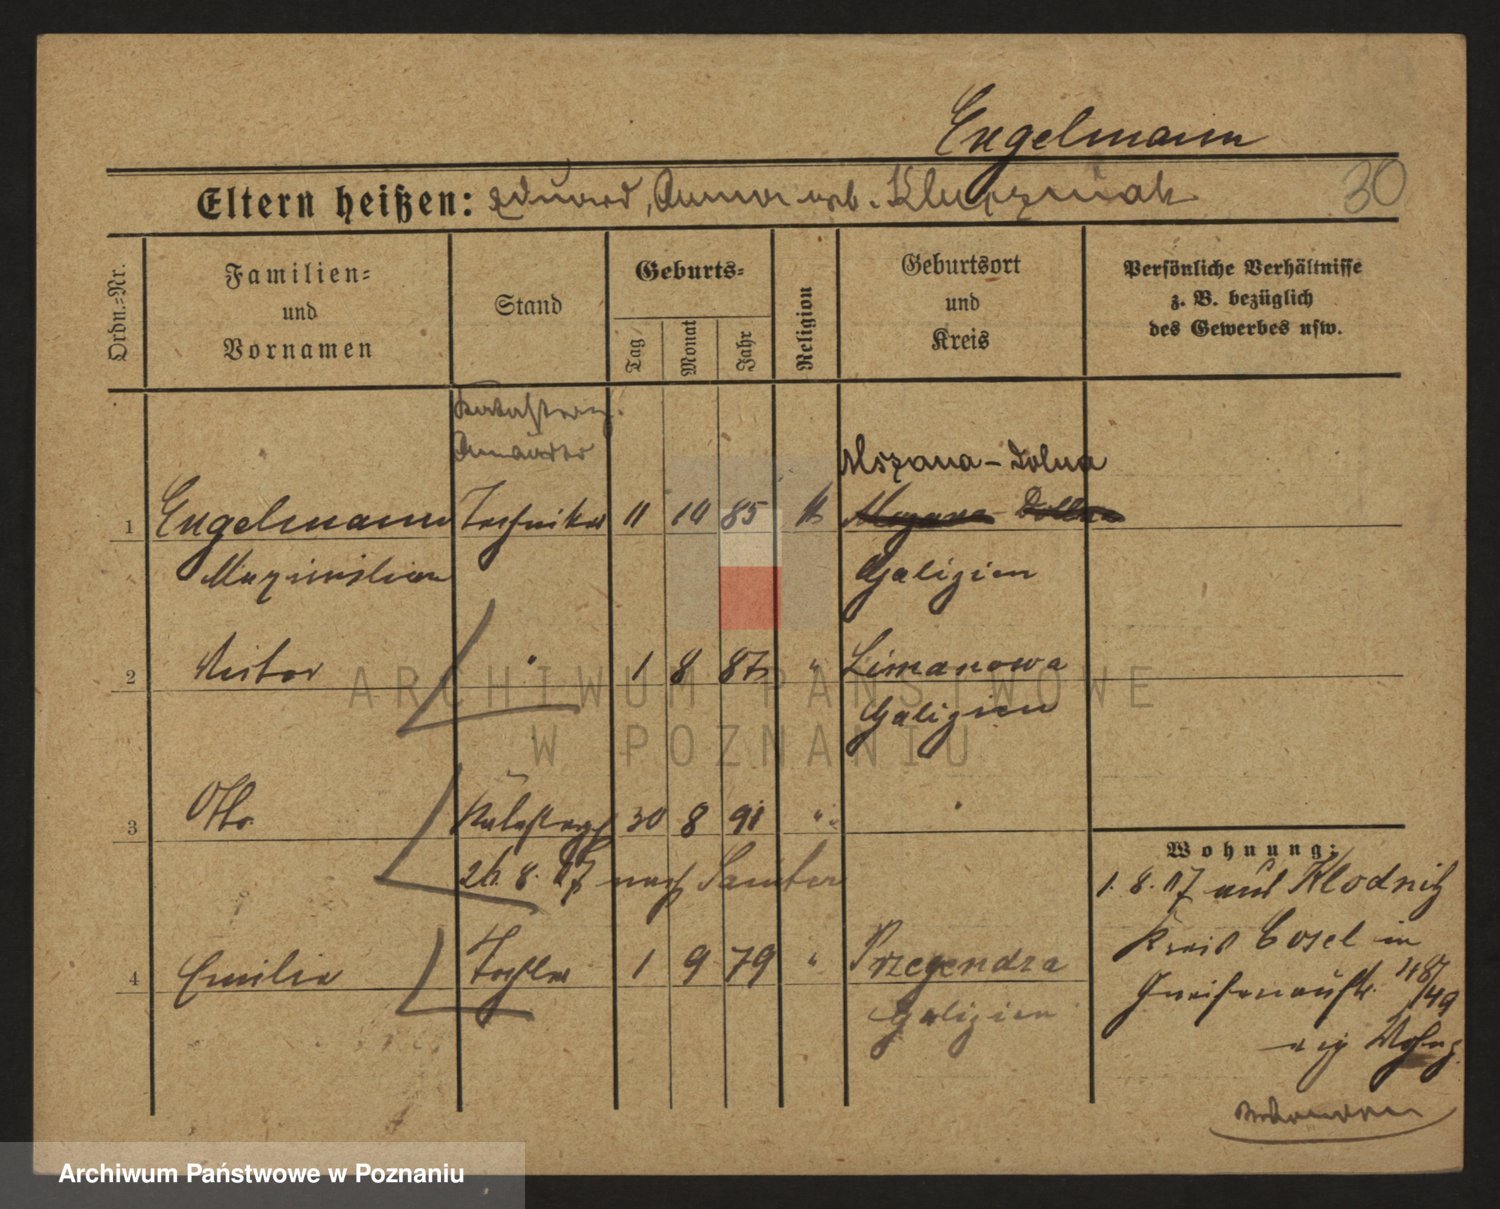 Engelmann
30
Eltern heißen: Eduard, Anna geb.
Ordn.=Nr.
Familien=
und
Vornamen
Stand
Geburts=
Tag
Monat
Jahr
Religion
Geburtsort
und
Kreis
Persönliche Verhältnisse
z. B. bezüglich
des Gewerbes usw.
Mszana-Dolna
1 Engelmann Techniker 11 10 85 k
Maximilian Galizien
2 Victor " 1 8 87 " Limanowa
Galizien
3 Otto 30 8 91 " "
Wohnung:
26. 8. 17 nach Samter
1. 8. 17 aus Klodnitz
Kreis Cosel in
4 Emilie Tochter 1 9 79 " Przegendza
Gneisenaustr. 48/49
Galizien
ARCHIWUM PAŃSTWOWE
W POZNANIU
Archiwum Państwowe w Poznaniu